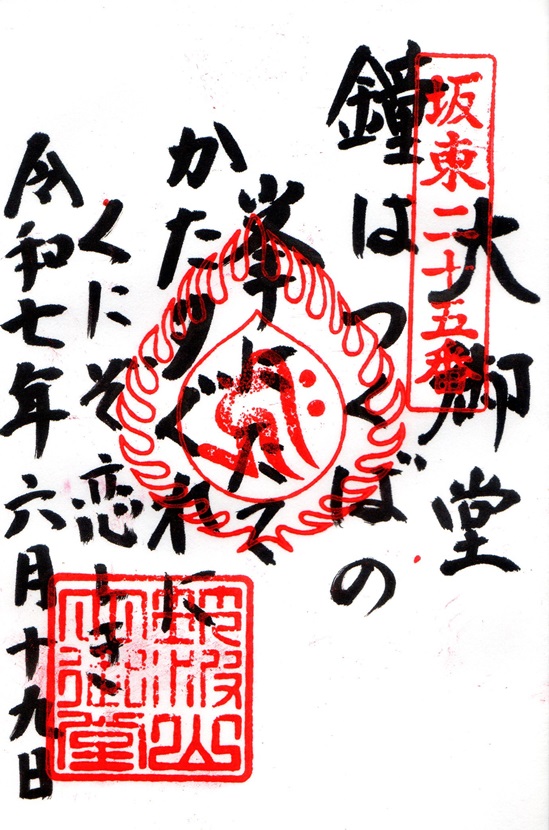 坂東二十五番
大御堂
鐘はつくばの
峯にたて
かた夕ぐれに
くにぞ恋しき
令和七年六月十九日
筑波山
大御堂